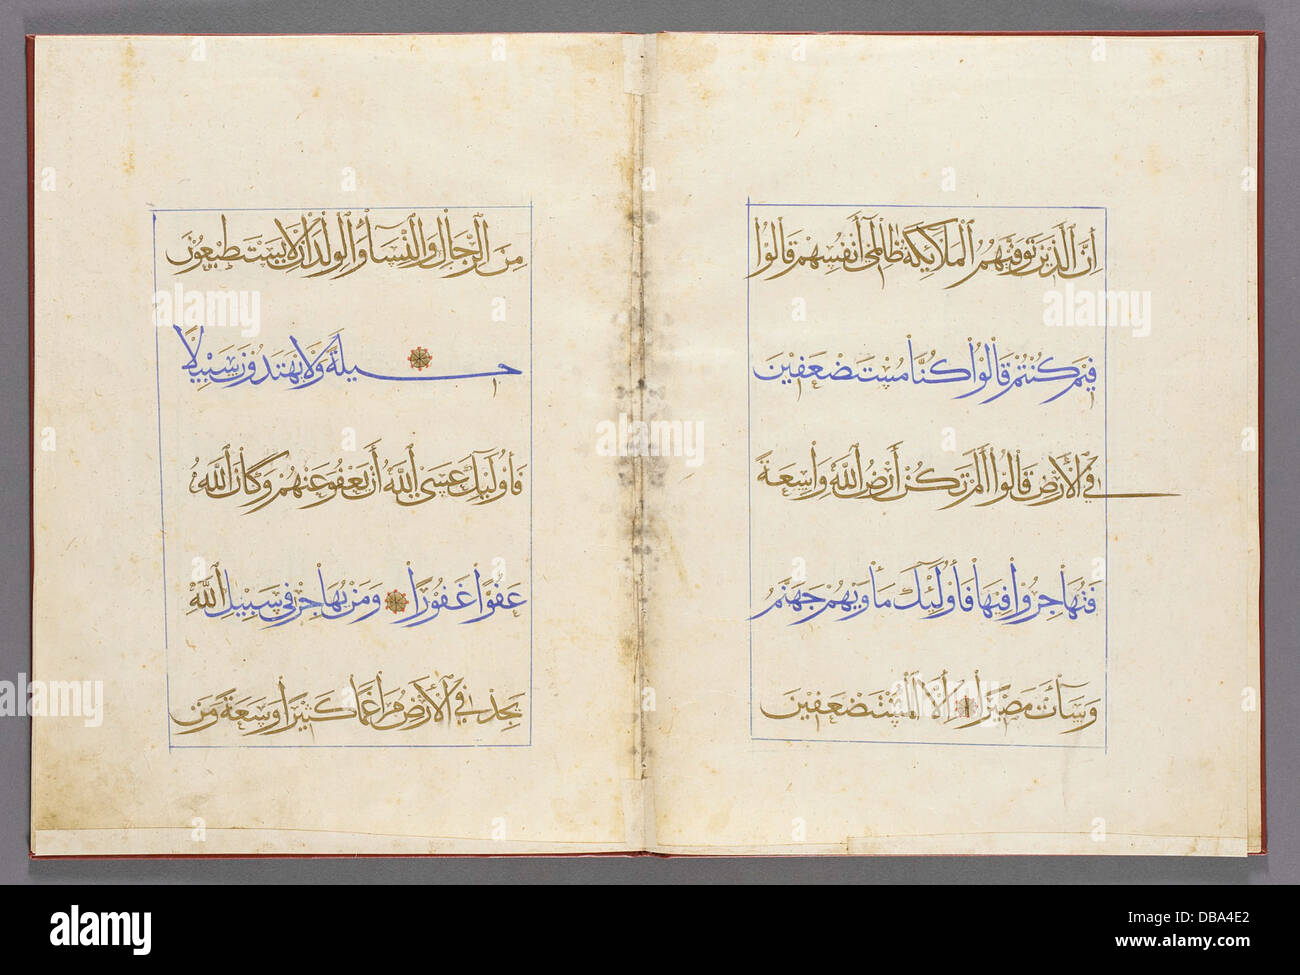 إن الذين توفيهم الملائكة ظالمي أنفسهم قالوا
فيم كنتم قالوا كنا مستضعفين
في الأرض قالوا ألم تكن أرض الله واسعة
فتهاجروا فيها فأولئك مأويهم جهنم
وسآئت مصيرا إلا المستضعفين
من الرجال والنسآء والولدان لا يستطيعون
حيلة ولا يهتدون سبيلا
فأولئك عسى الله أن يعفو عنهم وكان الله
عفوا غفورا ومن يهاجر في سبيل الله
يجد في الأرض مراغما كثيرا وسعة ومن
alamy
alamy stock photo
DBA4E2
www.alamy.com